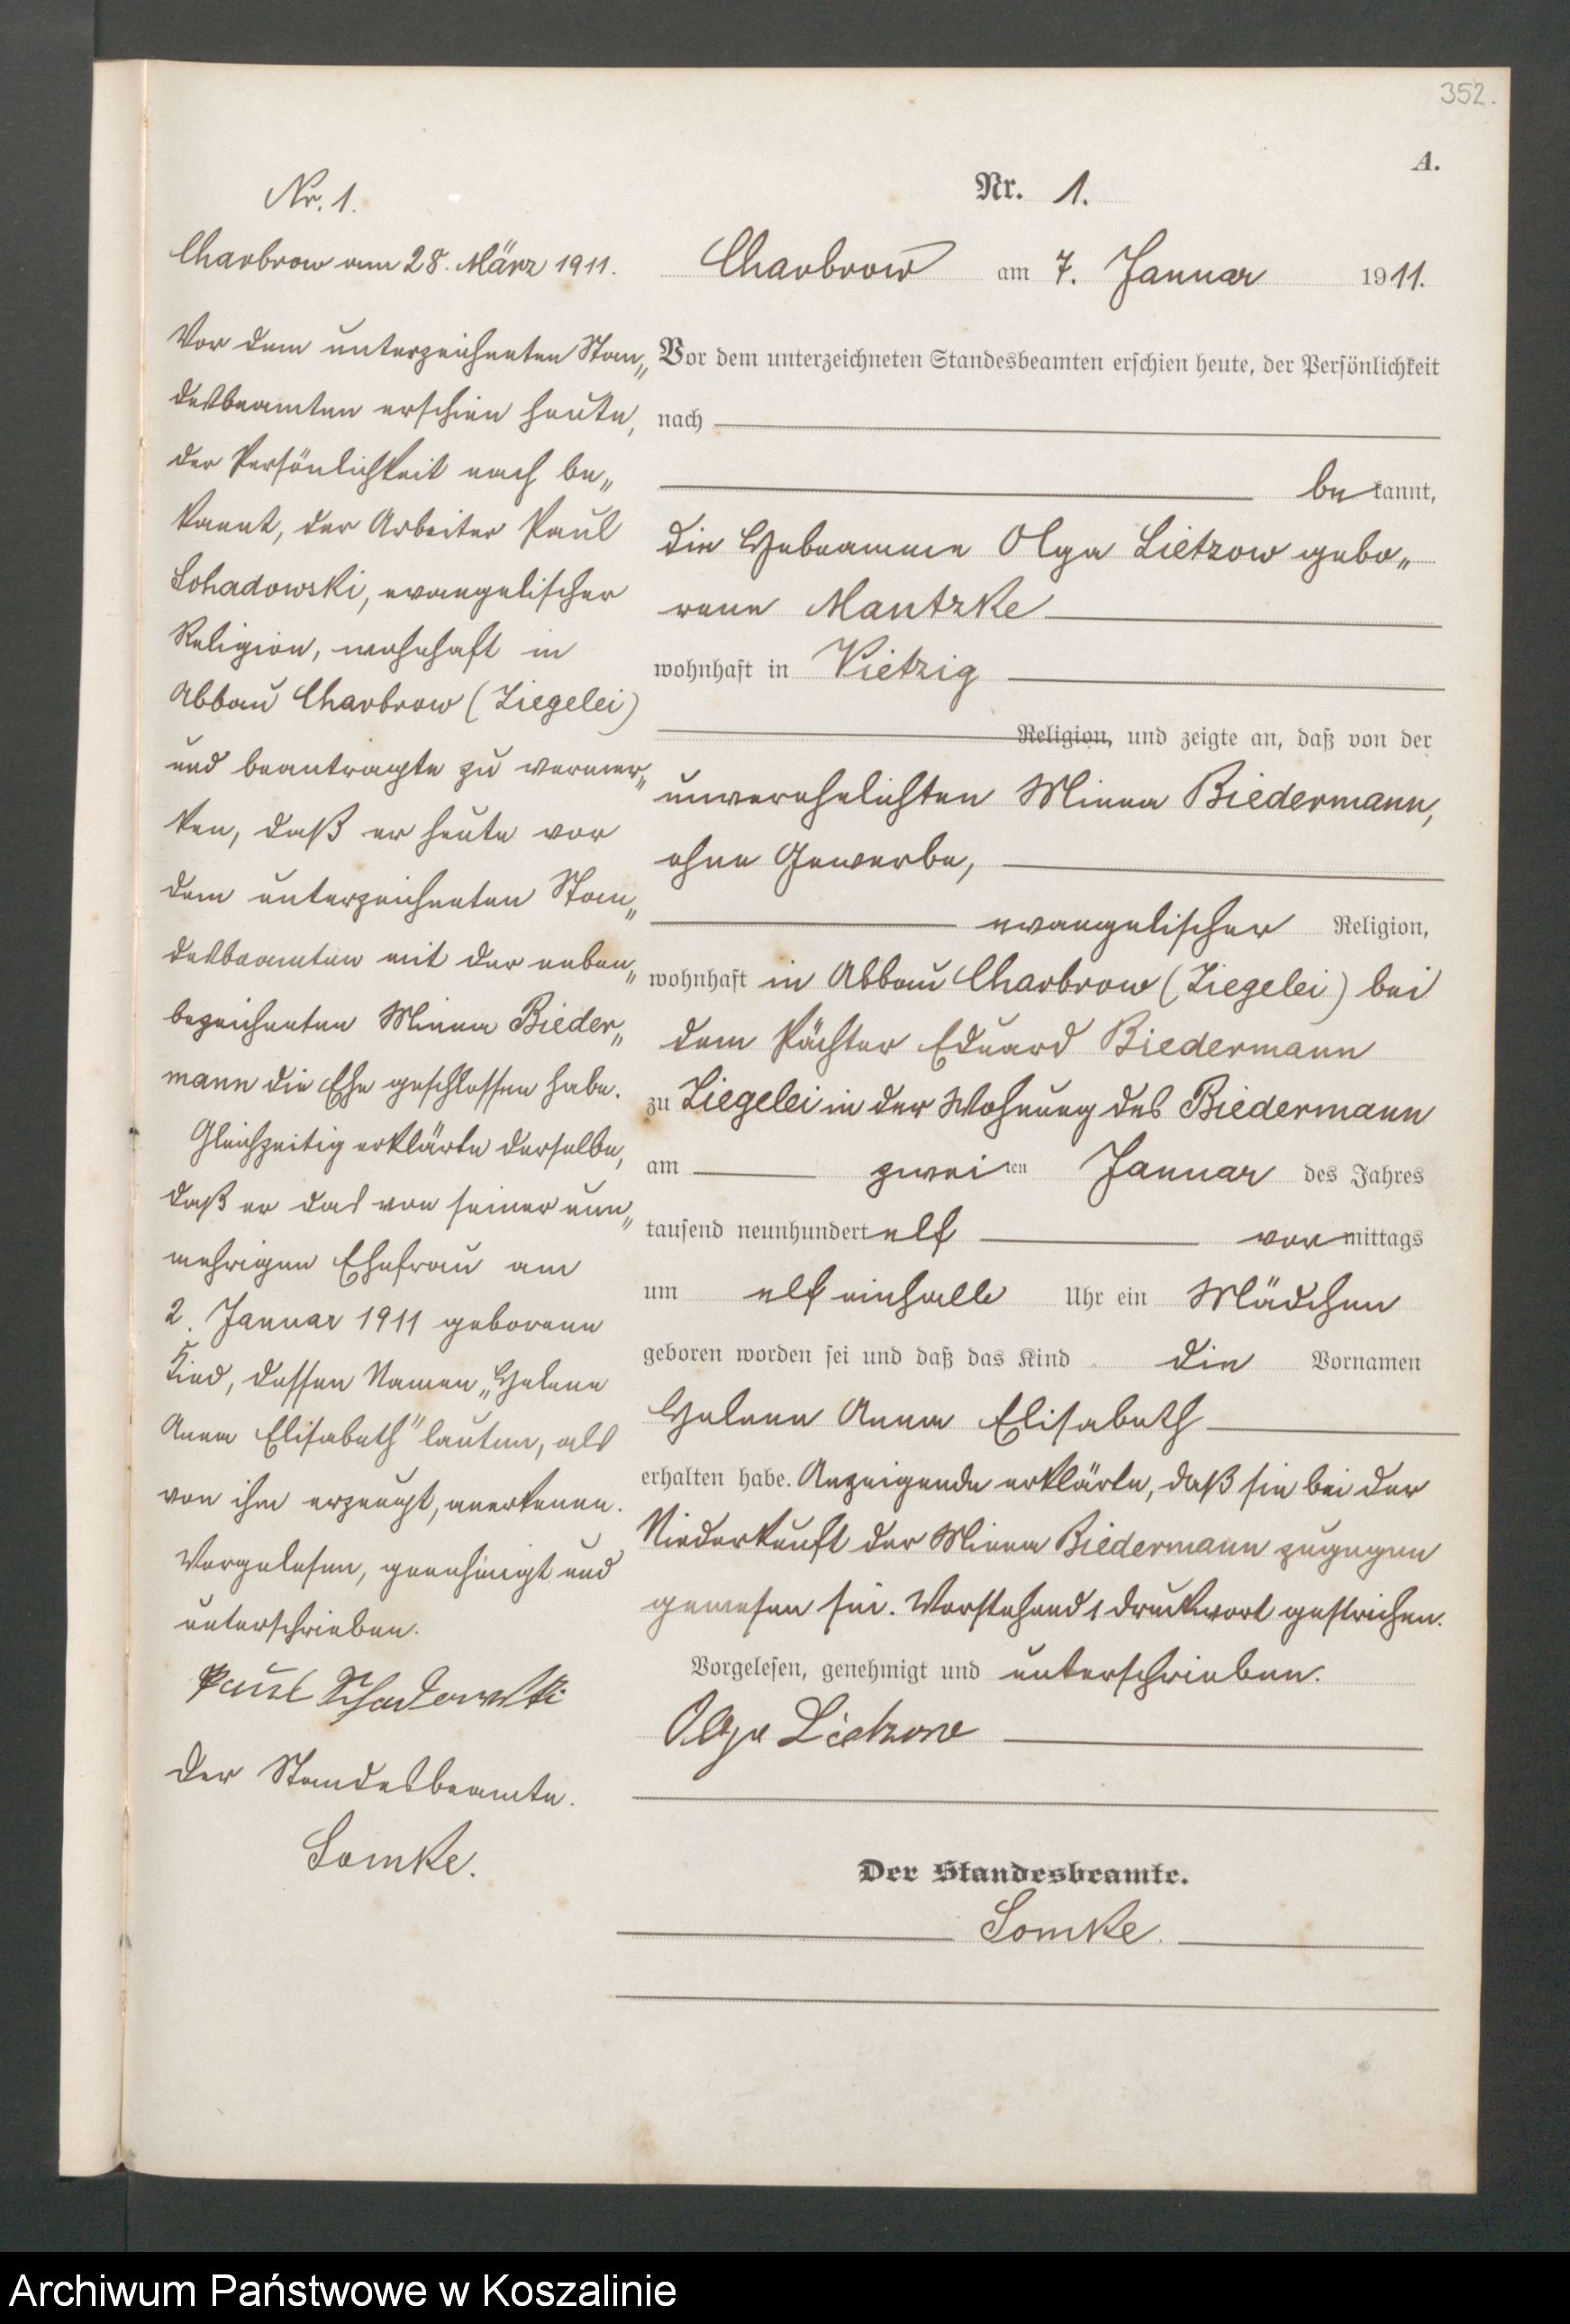 352.
A.
Nr. 1.
Charbrow am 28. März 1911.
Vor dem unterzeichneten Stan„
desbeamten erschien heute,
der Persönlichkeit nach be„
kannt, der Arbeiter Paul
Schadowski, evangelischer
Religion, wohnhaft in
Abbau Charbrow (Ziegelei)
und beantragte zu vermer„
ken, daß er heute vor
dem unterzeichneten Stan„
desbeamten mit der neben„
bezeichneten Minna Bieder„
mann die Ehe geschlossen habe.
Gleichzeitig erklärte derselbe,
daß er das von seiner nun„
mehrigen Ehefrau am
2. Januar 1911 geborene
Kind, dessen Namen „Helene
Anna Elisabeth" lauten, als
von ihm erzeugt, anerkenne.
Vorgelesen, genehmigt und
unterschrieben.
Paul Schadowski
Der Standesbeamte.
Lomke.
Nr. 1.
Charbrow am 7. Januar 1911.
Vor dem unterzeichneten Standesbeamten erschien heute, der Persönlichkeit
nach
be kannt,
die Hebeamme Olga Lietzow gebo„
rene Mantzke
wohnhaft in Vietzig
Religion, und zeigte an, daß von der
unverehelichten Minna Biedermann,
ohne Gewerbe,
evangelischer Religion,
wohnhaft in Abbau Charbrow (Ziegelei) bei
dem Pächter Eduard Biedermann
zu Ziegelei in der Wohnung des Biedermann
am zwei ten Januar des Jahres
tausend neunhundert elf vor mittags
um elf einhalb Uhr ein Mädchen
geboren worden sei und daß das Kind die Vornamen
Helene Anna Elisabeth
erhalten habe. Anzeigende erklärte, daß sie bei der
Niederkunft der Minna Biedermann zugegen
gewesen sei. Vorstehend 1 Druckwort gestrichen.
Vorgelesen, genehmigt und unterschrieben.
Olga Lietzow
Der Standesbeamte.
Lomke.
Archiwum Państwowe w Koszalinie